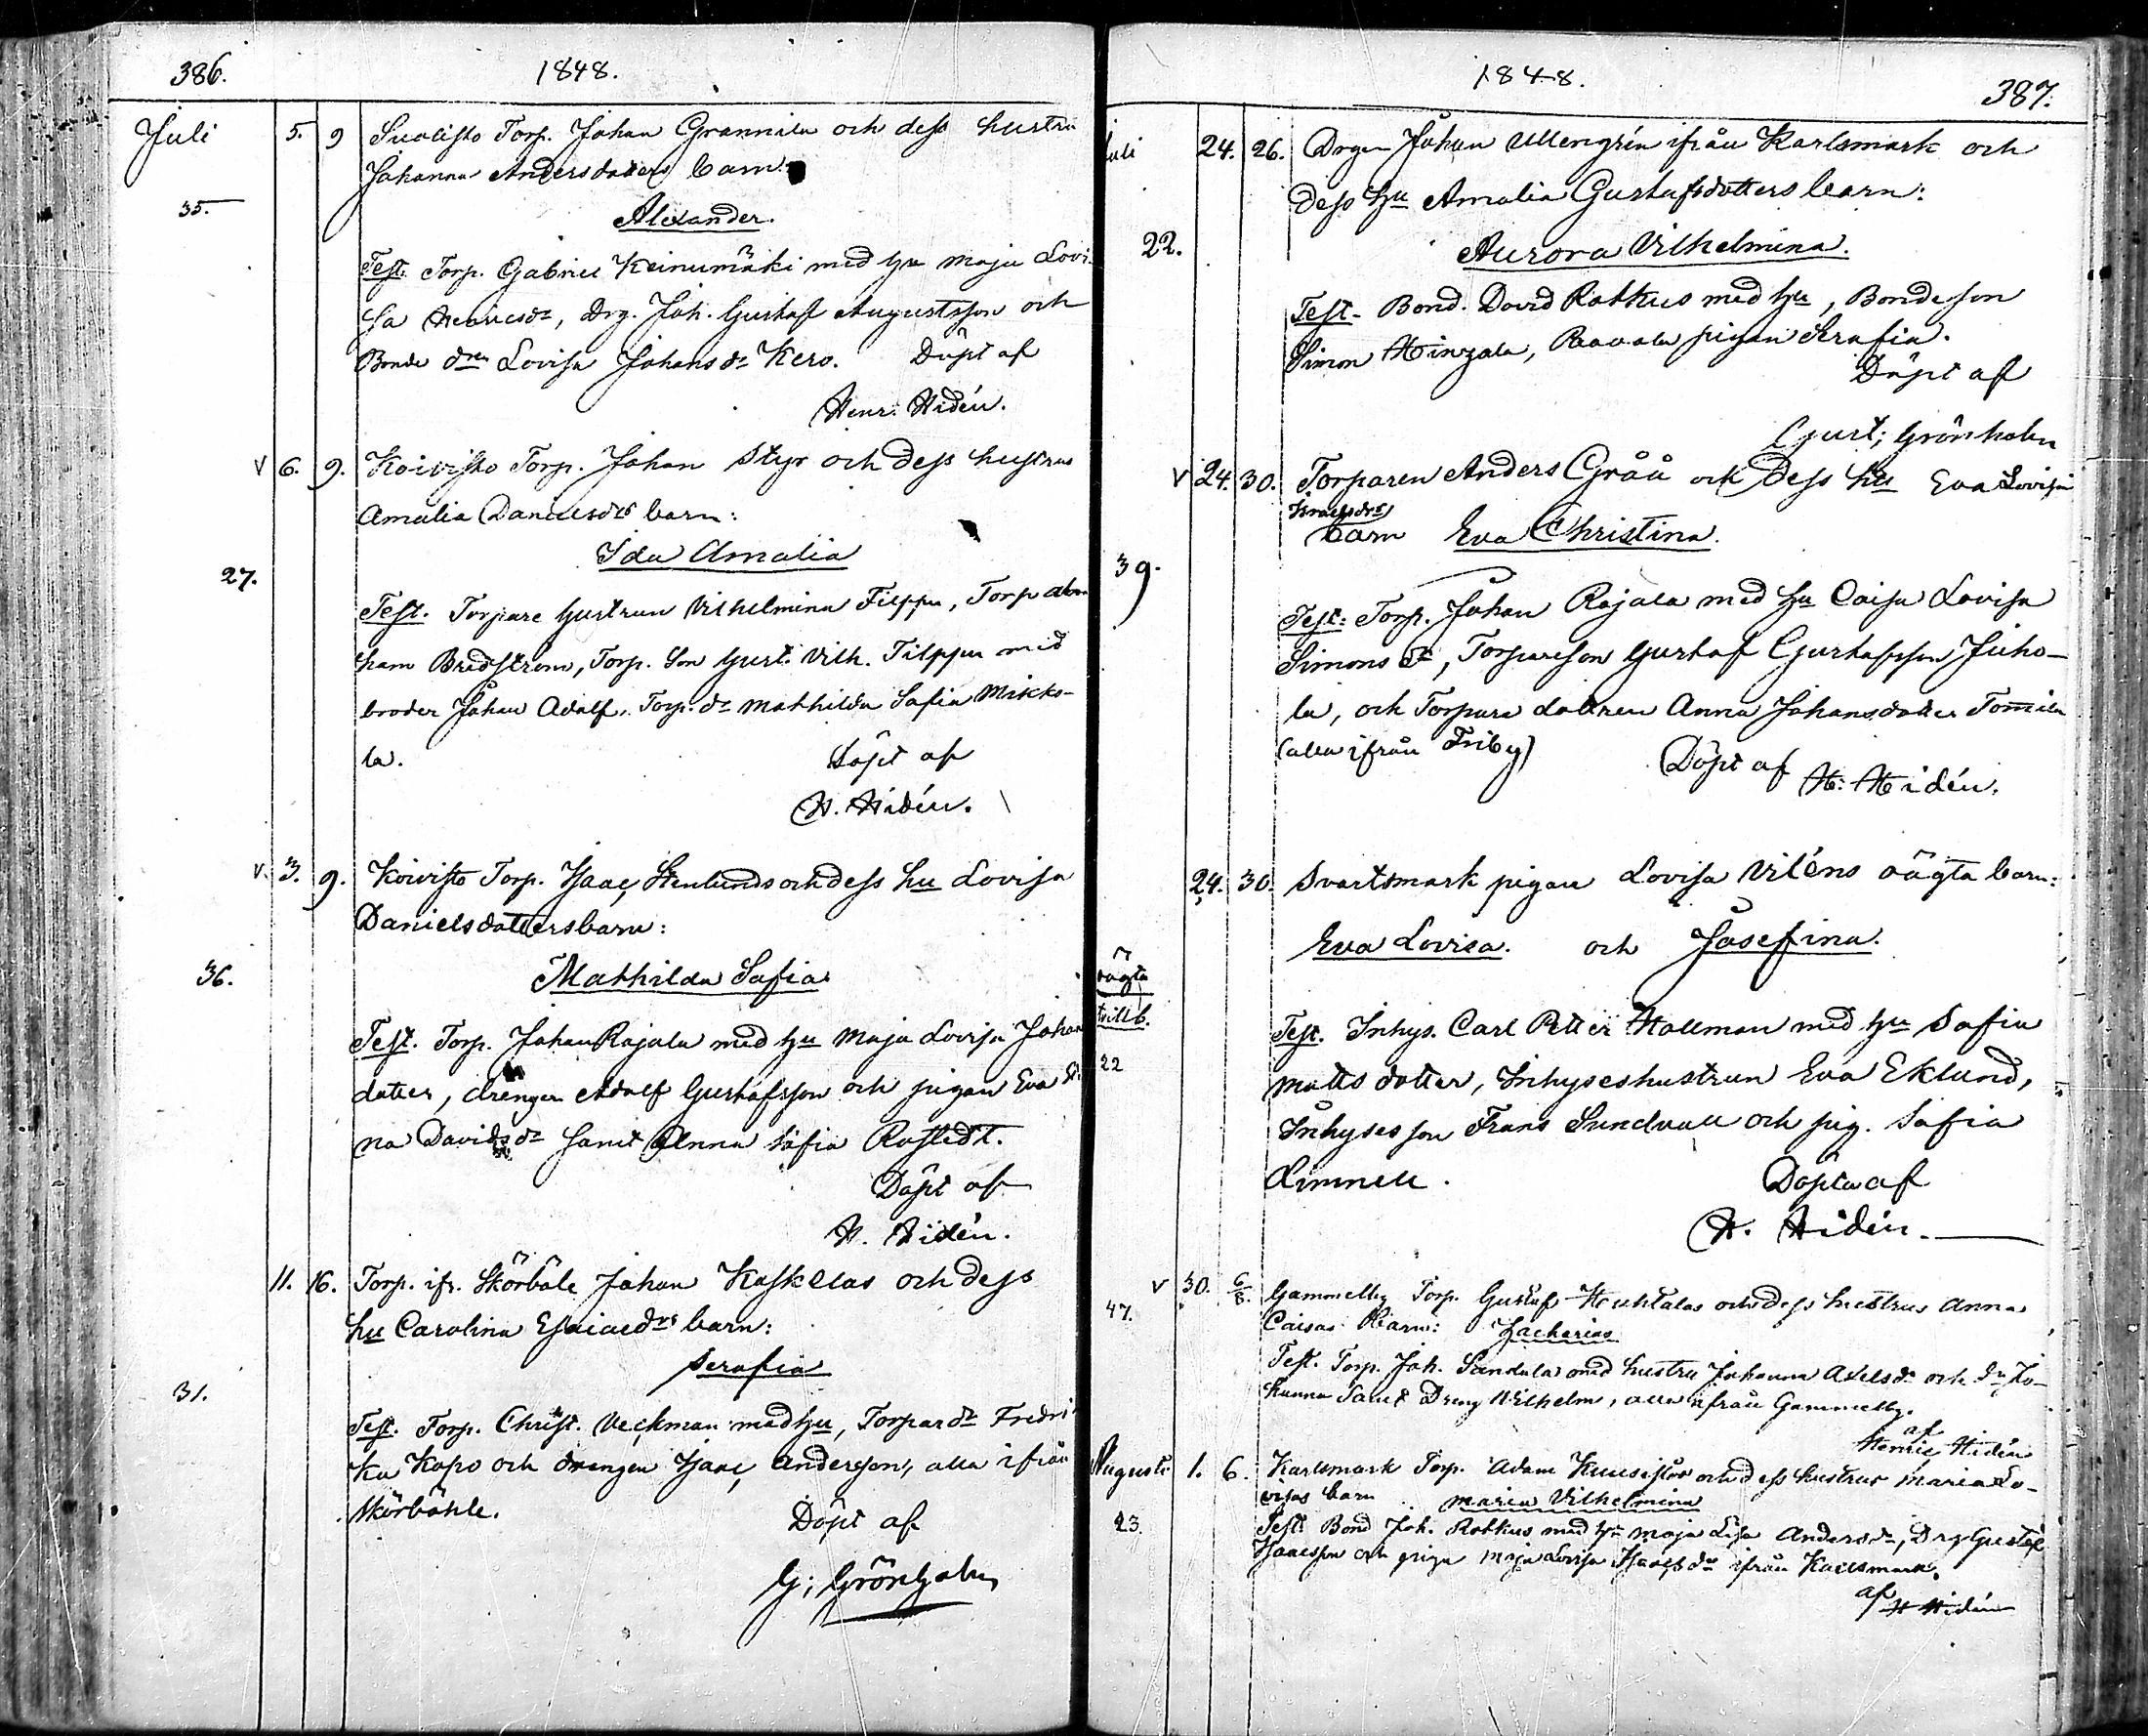 386.
1848.
Juli 5. 9 Suolisto Torp. Johan Grannila och dess hustru
Johanna Andersdotters barn:
35.
Alexander.
Test. Torp. Gabriel Keinumäki med hu Maja Lovi-
sa dr, drg. Joh. Gustaf Augustsson och
Bonde dren Lovisa Johansdr Kero. Döpt af
Henr. Hidén.
V 6. 9. Koivisto Torp. Johan Styr och dess hustrus
Amalia Danielsdrs barn:
Ida Amalia
27.
Test. Torpare hustrun Vilhelmina Filppu, Torp Abra
ham Bredström, Torp. Son Gust. Vilh. Filppu med
broder Johan Adolf, Torp. dr Mathilda Safia Mikko-
la. Döpt af
H. Hidén.
V. 3. 9. Koivisto Torp. Isaac Stenlunds och dess hu Lovisa
Danielsdotters barn:
36.
Mathilda Safia
Test. Torp. Johan Rajala med hu Maja Lovisa Johans
dotter, drängen Adolf Gustafsson och pigan Eva Sti
na Davidsdr samt Anna Safia Rostedt.
Döpt af
H. Hidén.
11. 16. Torp. ifr. Skörbåle Johan Kaskelas och dess
hu Carolina Esaiaedrs barn:
Serafia
31.
Test. Torp. Christ. Veckman med hu, Torpar dr Fredri
ka Kapo och drengen Isaac Andersson, alla ifrån
Skörbåhle. Döpt af
G; Grönholm
1848.
387.
Juli 24. 26. Drgen Johan Ullengrén ifrån Karlsmark och
dess hu Amalia Gustafsdotters barn:
22.
Aurora Vilhelmina.
Test. Bond. David Rathus med hu, Bondeson
Simon Hinzala, Raavala pigan Serafia.
Döpt af
Gust; Grönholm
V 24. 30. Torparen Anders Gråå och Dess hu Eva Lovisa
Israelsdrs
barn Eva Christina.
39.
Test: Torp. Johan Rajala med hu Caisa Lovisa
Simons dr, Torpareson Gustaf Gustafsson Juho-
la, och Torpare dottren Anna Johansdotter Tommila
(alla ifrån Friby) Döpt af H: Hidén.
24. 30. Svartsmark pigan Lovisa Viléns oägta barn:
Eva Lovisa. och Josefina.
oägta
tvillb.
22
Test. Inhys. Carl Petter Hallman med hu Safia
Matts dotter, Inhyseshustrun Eva Eklund,
Inhyses son Frans Sundvall och pig. Safia
Linnell. Döpta af
H. Hidén.
V 30. 6/8. Gammelby Torp. Gustaf Huhtalas och dess hustrus Anna
47.
Caisas Barn: Zacharias
Test. Torp. Joh. Sandula med hustru Johanna Axelsdr och Jo-
hanna samt Dreng Wilhelm, alla ifrån Gammelby.
af
Henric Hidén
Augusti 1. 6. Karlsmark Torp. Adam Kuusistos och dess hustrus Maria Lo-
visas barn Maria Vilhelmina
23.
Test Bond Joh. Rathus med hu Maja Lisa Andersdr, Drg Gustaf
Isaacsson och piga Maja Lovisa Isaacsdr ifrån Karlsmark.
af
H Hidén